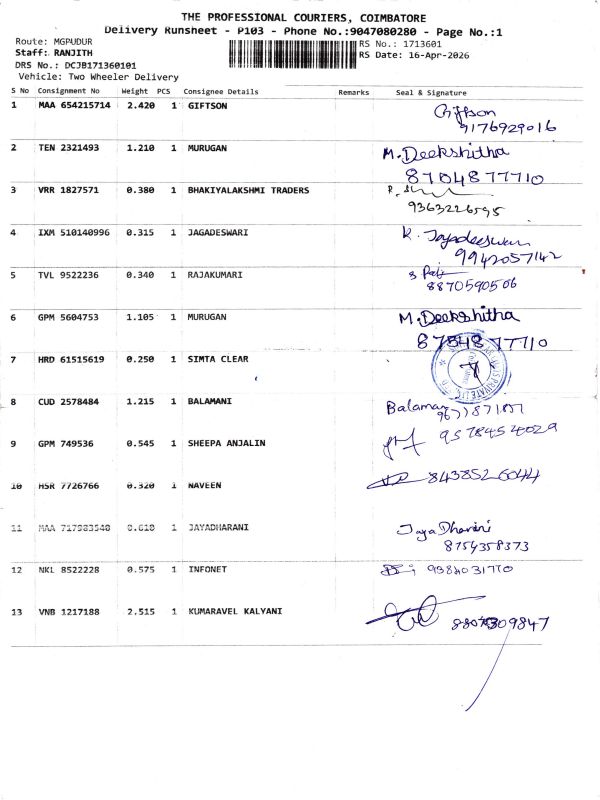 THE PROFESSIONAL COURIERS, COIMBATORE
Delivery Runsheet - P103 - Phone No.:9047080280 - Page No.:1
Route: MGPUDUR
RS No.: 1713601
Staff: RANJITH
RS Date: 16-Apr-2026
DRS No.: DCJB171360101
Vehicle: Two Wheeler Delivery
S No Consignment No Weight PCS Consignee Details Remarks Seal & Signature
1 MAA 654215714 2.420 1 GIFTSON Giftson
9176929016
2 TEN 2321493 1.210 1 MURUGAN M. Deekshitha
8704877710
3 VRR 1827571 0.380 1 BHAKIYALAKSHMI TRADERS
9363226595
4 IXM 510140996 0.315 1 JAGADESWARI K. Jagadeeswari
9942057142
5 TVL 9522236 0.340 1 RAJAKUMARI
8870590506
6 GPM 5604753 1.105 1 MURUGAN M. Deekshitha
8754877710
7 HRD 61515619 0.250 1 SIMTA CLEAR
8 CUD 2578484 1.215 1 BALAMANI Balamani
9 GPM 749536 0.545 1 SHEEPA ANJALIN 9578454029
10 HSR 7726766 0.320 1 NAVEEN 8438526044
11 MAA 717983540 0.610 1 JAYADHARANI Jaya Dharani
8754358373
12 NKL 8522228 0.575 1 INFONET 9384031770
13 VNB 1217188 2.515 1 KUMARAVEL KALYANI